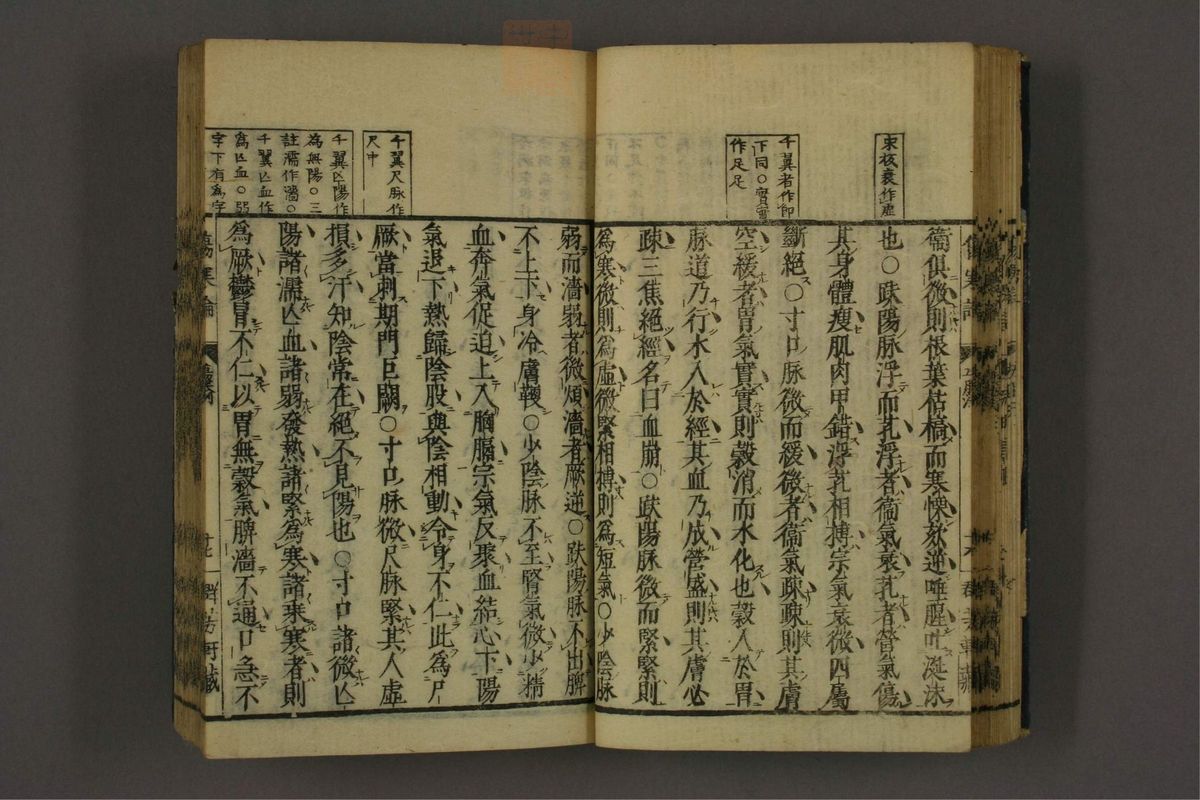 宋板衰作虛
千翼者作即
下同○實實
作足足
衞俱微則根葉枯槁而寒慄欬逆唾腥吐涎沫
也○趺陽脉浮而芤浮者衞氣衰芤者營氣傷
其身體瘦肌肉甲錯浮芤相搏宗氣衰微四屬
斷絕○寸口脉微而緩微者衞氣疎疎則其膚
空緩者胃氣實實則穀消而水化也穀入於胃
脉道乃行水入於經其血乃成營盛則其膚必
疎三焦絕經名曰血崩○趺陽脉微而緊緊則
爲寒微則爲虛微緊相搏則爲短氣○少陰脉
千翼尺脉作
尺中
千翼亾陽作
為無陽○三
註濡作濇○
千翼亾血作
為亾血○弱
字下有為字
弱而濇弱者微煩濇者厥逆○趺陽脉不出脾
不上下身冷膚鞕○少陰脉不至腎氣微少精
血奔氣促迫上入胸膈宗氣反聚血結心下陽
氣退下熱歸陰股與陰相動令身不仁此爲尸
厥當刺期門巨闕○寸口脉微尺脉緊其人虛
損多汗知陰常在絕不見陽也○寸口諸微亾
陽諸濡亾血諸弱發熱諸緊爲寒諸乘寒者則
爲厥鬱冒不仁以胃無穀氣脾濇不通口急不
傷寒論